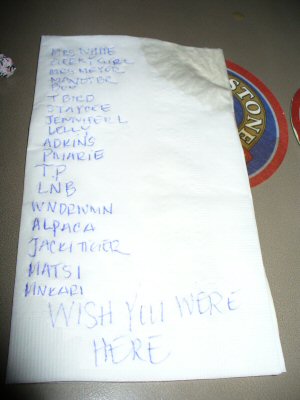 MRS NAME
CHEEKY GIRL
MRS MEYER
T BIRD
STAYCEE
JENNIFER L
LELLY
ADKINS
PMARIE
T.P
LNB
WNDRWMN
ALPACA
JACKITIGER
MATSI
MNKARI
WISH YOU WERE
HERE
STONE